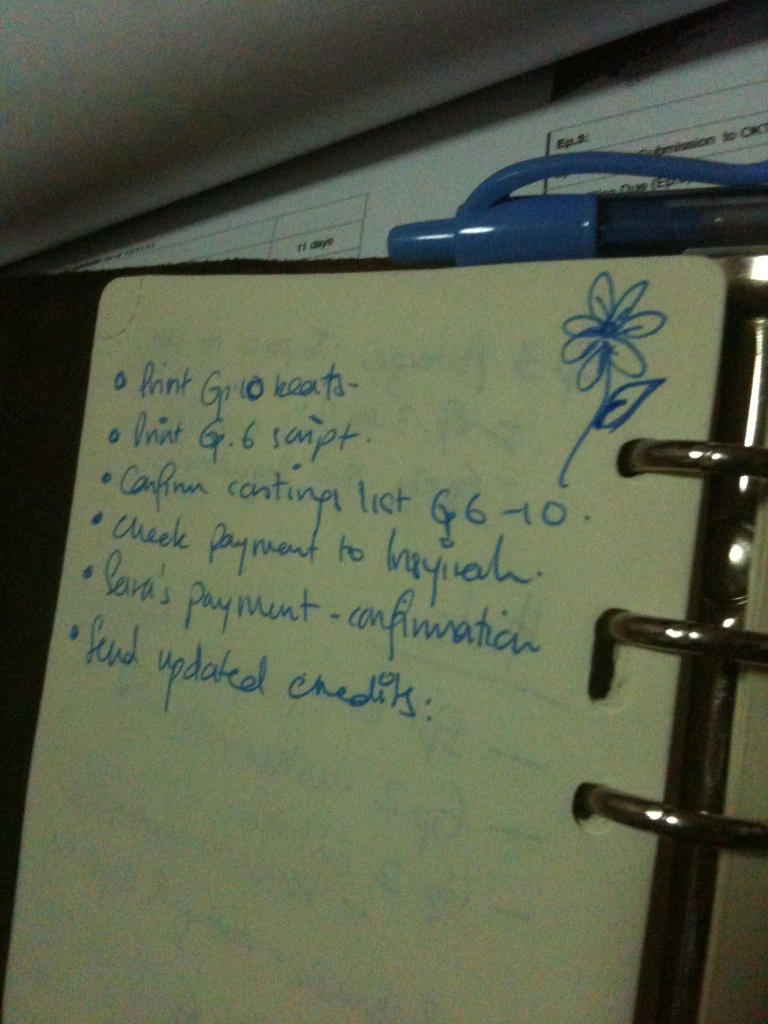 Ep.3:
Submission to OK
Due (Ep
11 days
• Print Ep.10 beats-
• Print Ep. 6 script.
• Confirm castings list Ep 6 - 10.
• Check payment to
• Sara's payment - confirmation
• Send updated credits.